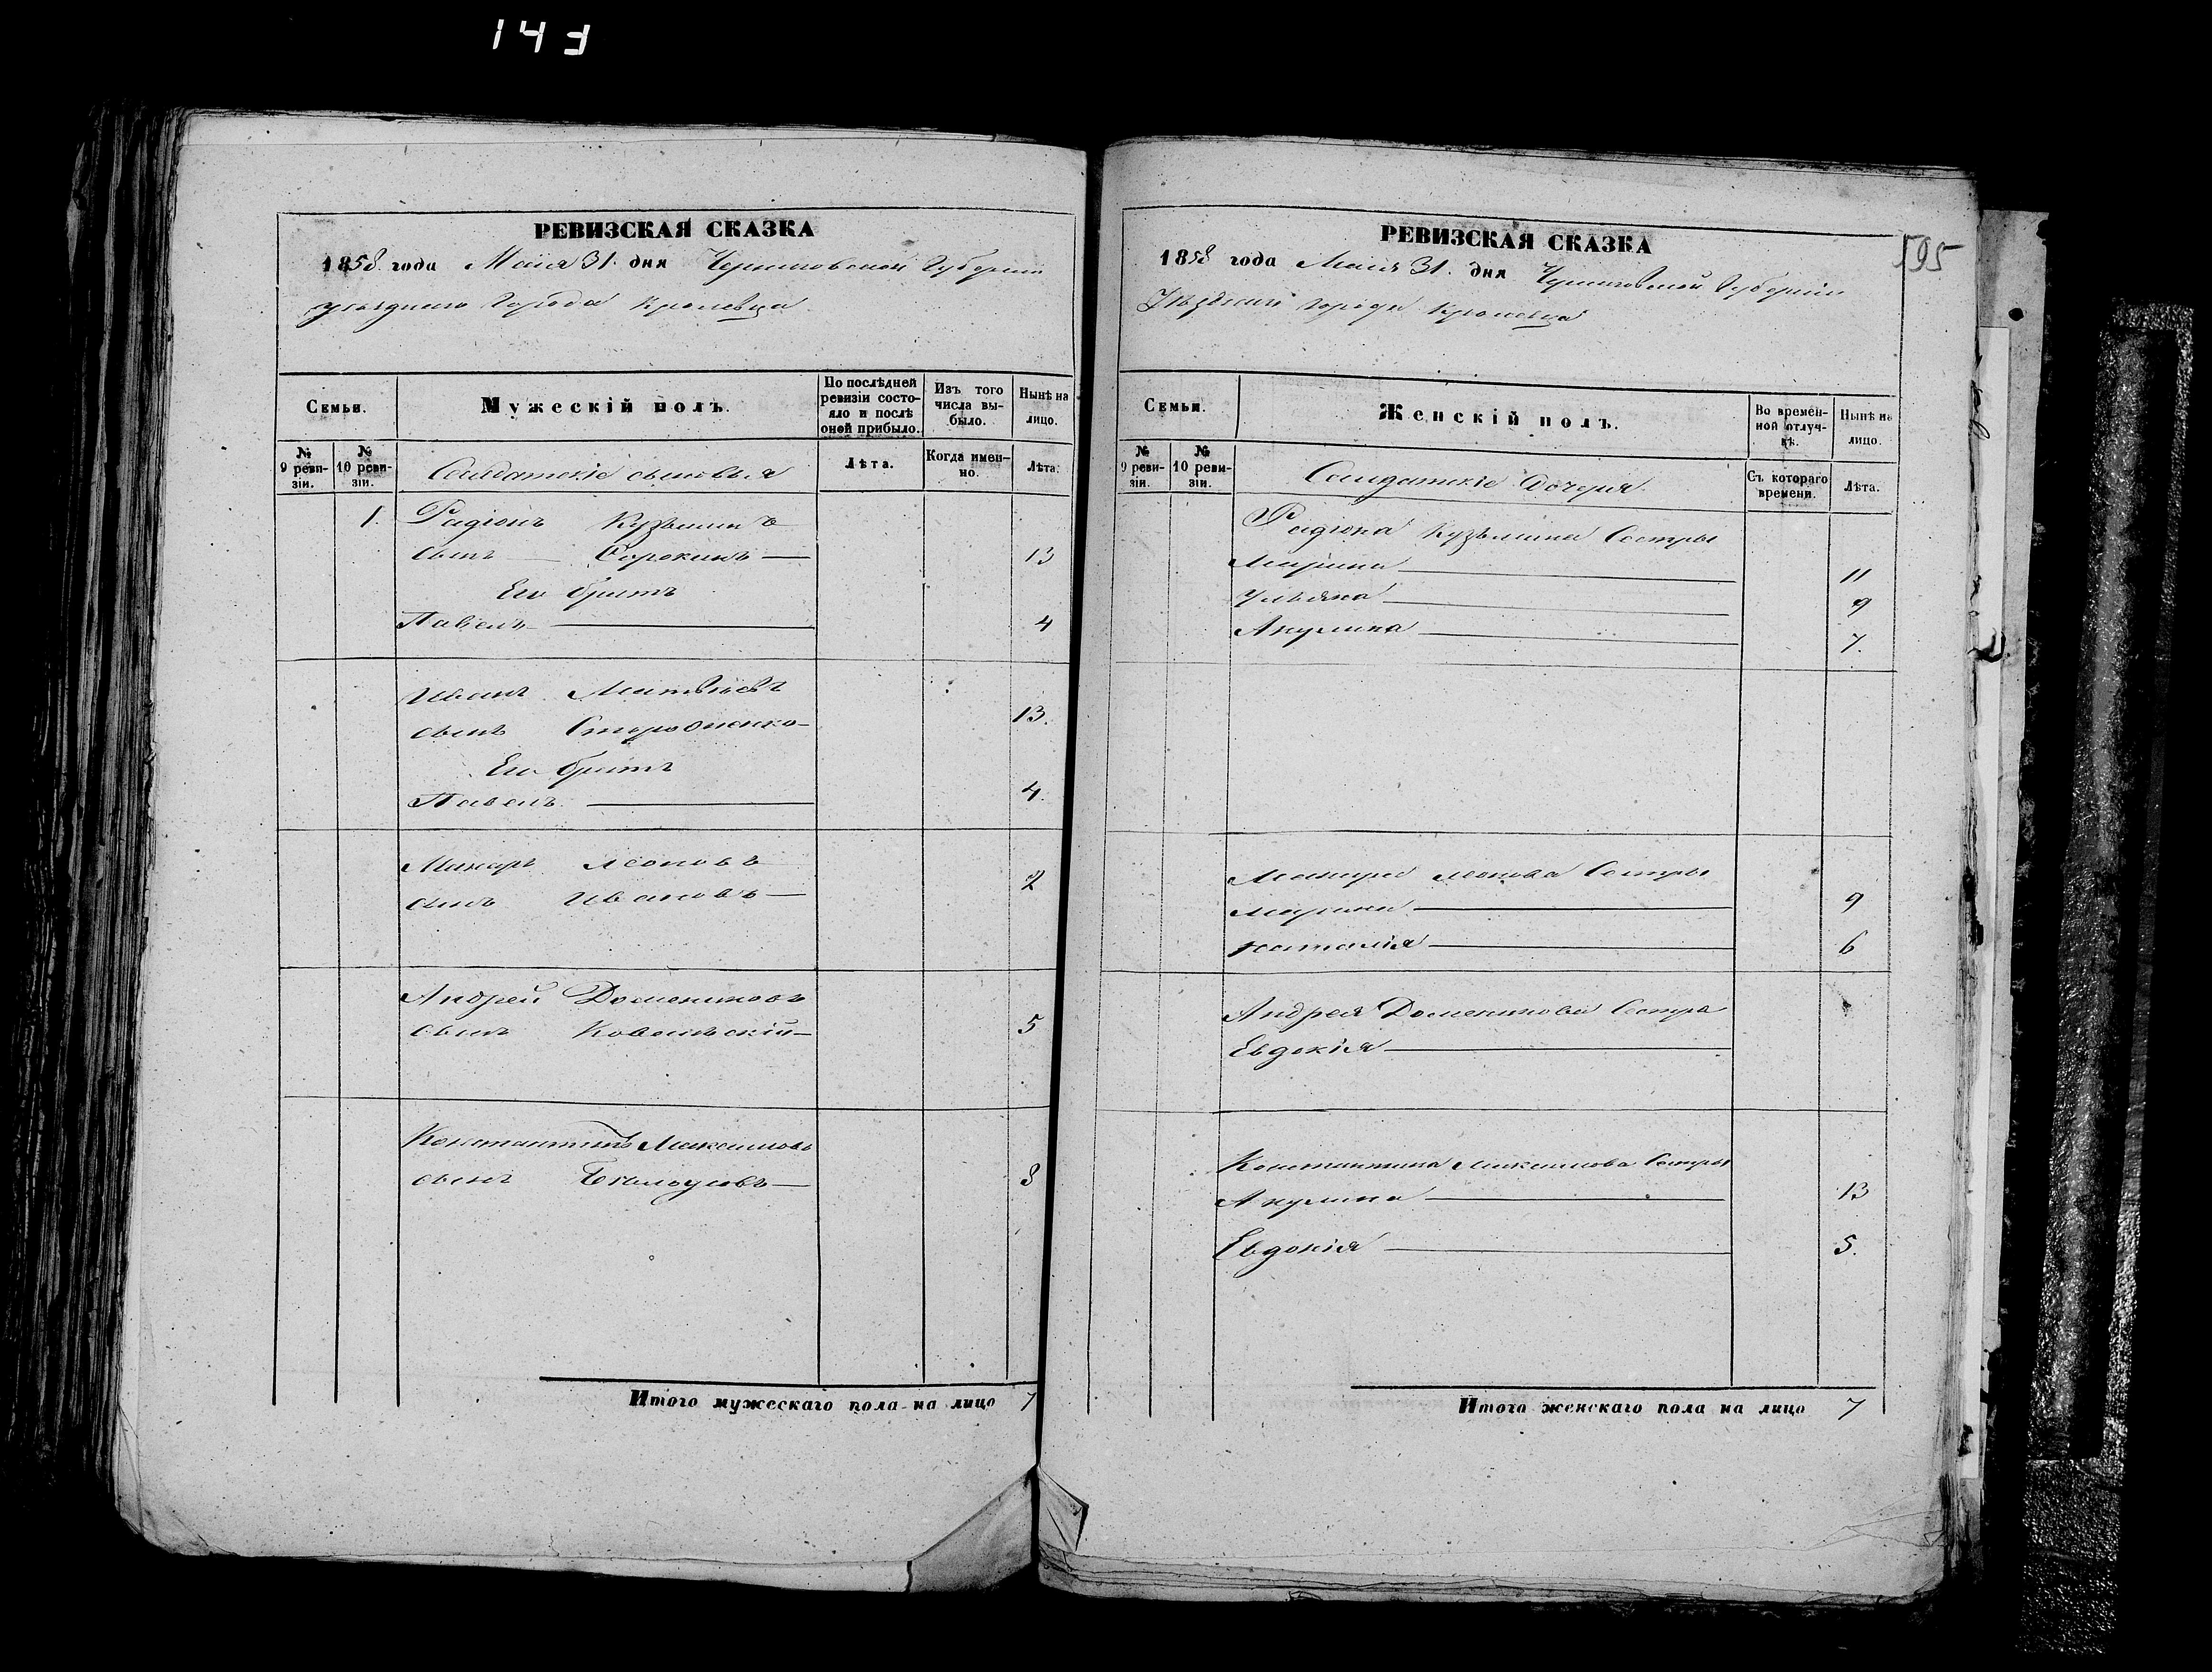 143
РЕВИЗСКАЯ СКАЗКА
1858. года Маія 31. дня Черниговской Губерніи
уѣзднаго Города Кролевца
Семьи.
Мужескій полъ.
По послѣдней ревизіи состояло и послѣ оной прибыло.
Изъ того числа выбыло.
Нынѣ на лицо.
№ 9 ревизіи.
№ 10 ревизіи.
Солдатскіе сыновья
Лѣта.
Когда именно.
Лѣта.
1. Радіонъ Кузьминъ
сынъ Сорокинъ 13
Его братъ
Павелъ 4
Иванъ Матвѣевъ
сынъ 13.
Его братъ
Павелъ 4.
Макаръ Леоновъ
сынъ Ивановъ 2
Андрей Доментиновъ
сынъ 5
Константинъ Максимовъ
сынъ 3
Итого мужескаго пола на лицо 7
595
РЕВИЗСКАЯ СКАЗКА
1858 года Маія 31. дня Черниговской Губерніи
Уѣзднаго города Кролевца
Семьи.
Женскій полъ.
Во временной отлучкѣ.
Нынѣ на лицо.
№ 9 ревизіи.
№ 10 ревизіи.
Солдатскіе Дочеря
Съ котораго времени.
Лѣта.
Радіона Кузьмина Сестры
Марина 11
Ульяна 9
Акулина 7.
Макара Леонова Сестры
Марина 9
Наталія 6
Андрея Сестра
Евдокія
Константина Максимова Сестры
Акулина 13
Евдокія 5.
Итого женскаго пола на лицо 7